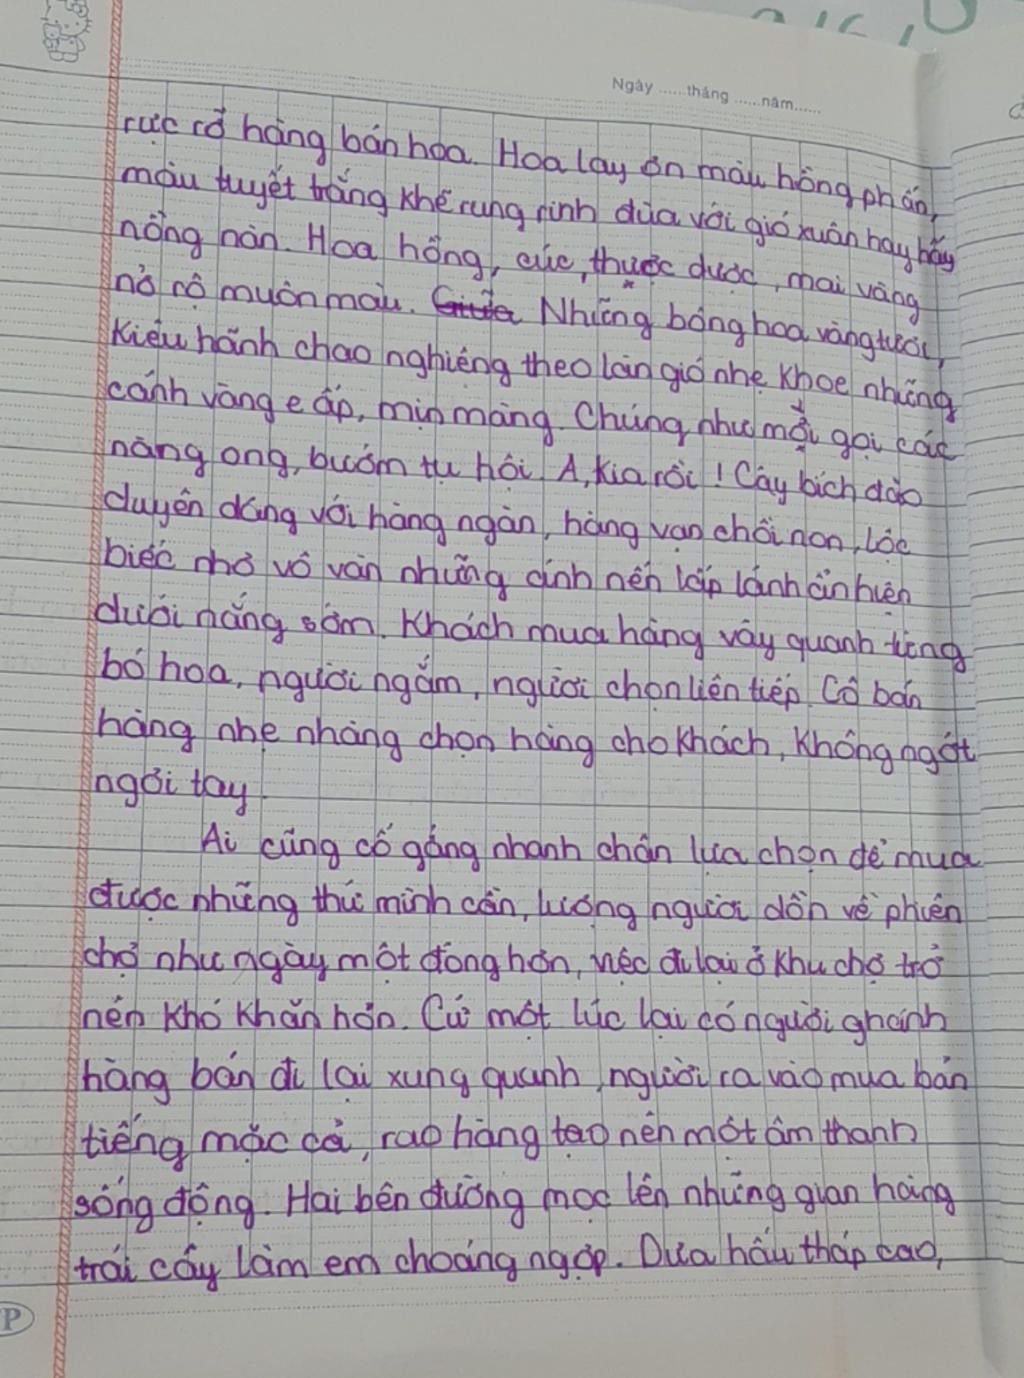 Ngày ......tháng ......năm......
rực rỡ hàng bán hoa. Hoa lay ơn màu hồng phấn,
màu tuyết trắng khẽ rung rinh đùa với gió xuân hay hây
nồng nàn. Hoa hồng, cúc, thược dược, mai vàng
nở rộ muôn màu. Những bông hoa vàng tươi,
kiêu hãnh chao nghiêng theo làn gió nhẹ khoe những
cánh vàng e ấp, mịn màng. Chúng như mời gọi các
nàng ong, bướm tụ hội. A, kia rồi! Cây bích đào
duyên dáng với hàng ngàn, hàng vạn chồi non, lộc
biếc nhỏ vô vàn những ánh nến lấp lánh ẩn hiện
dưới nắng sớm. Khách mua hàng vây quanh từng
bó hoa, người ngắm, người chọn liên tiếp. Cô bán
hàng nhẹ nhàng chọn hàng cho khách, không ngớt
ngơi tay.
Ai cũng cố gắng nhanh chân lựa chọn để mua
được những thứ mình cần, lượng người dồn về phiên
chợ như ngày một đông hơn, việc đi lại ở khu chợ trở
nên khó khăn hơn. Cứ một lúc lại có người ghánh
hàng bán đi lại xung quanh, người ra vào mua bán
tiếng mặc cả, rao hàng tạo nên một âm thanh
sống động. Hai bên đường mọc lên những gian hàng
trái cây làm em choáng ngợp. Dưa hấu tháp cao,
P